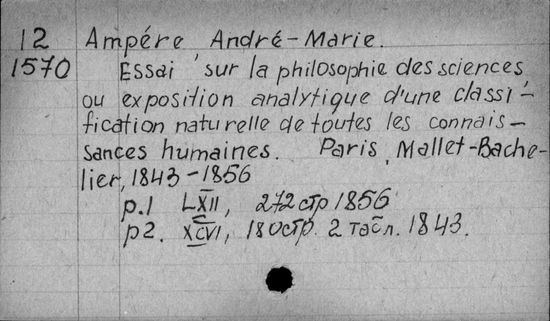 12 Ampére André-Marie.
1570 Essai sur la philosophie des sciences,
ou exposition analytique d'une classi-
fication naturelle de toutes les connais-
sances humaines. Paris, Mallet-Bache-
lier, 1843-1856
p.1 LXII, 272 стр 1856
p2. XCVI, 180стр. 2 табл. 1843.